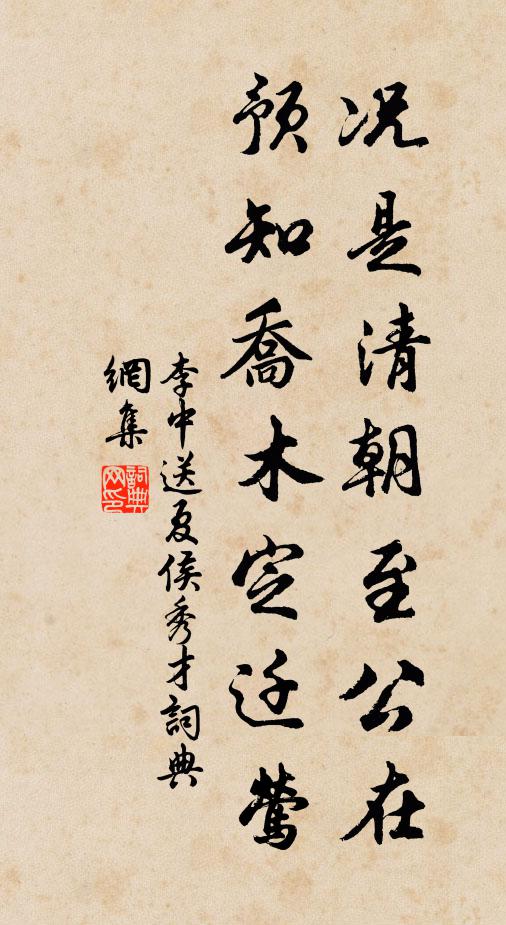 况是清朝至公在
预知喬木定迁莺
李中送夏侯秀才詞典
網集
詞典
网印